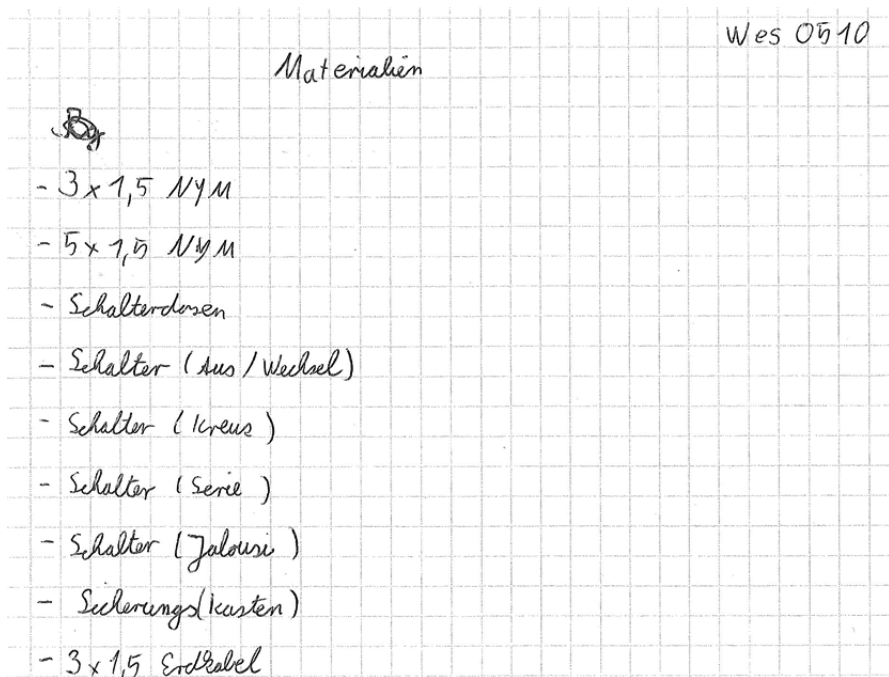 Wes 0510
Materialien
- 3 x 1,5 NYM
- 5 x 1,5 NYM
- Schalterdosen
- Schalter (Aus / Wechsel)
- Schalter (Kreus)
- Schalter (Serie)
- Schalter (Jalousi)
- Sicherungs(kasten)
- 3 x 1,5 Erdkabel